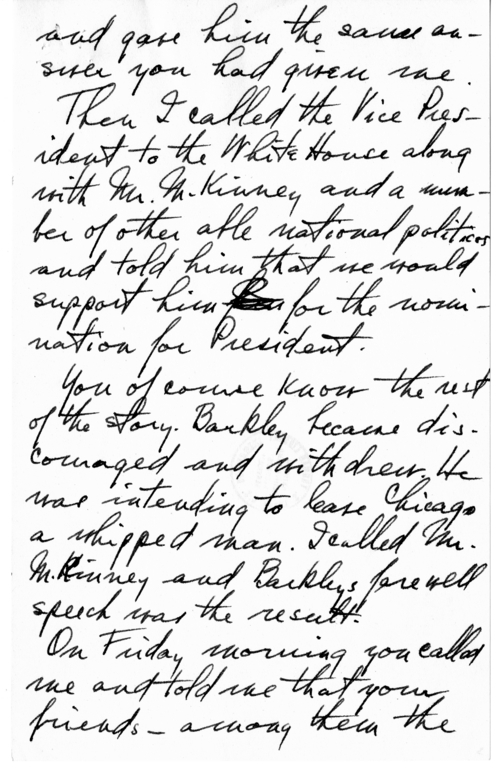 and gave him the same an-
swer you had given me.
Then I called the Vice Pres-
ident to the White House along
with Mr. McKinney and a num-
ber of other able national politicos
and told him that we would
support him for the nomi-
nation for President.
You of course know the rest
of the story. Barkley became dis-
couraged and withdrew. He
was intending to leave Chicago
a whipped man. I called Mr.
McKinney and Barkleys farewell
speech was the result.
On Friday morning you called
me and told me that your
friends - among them the